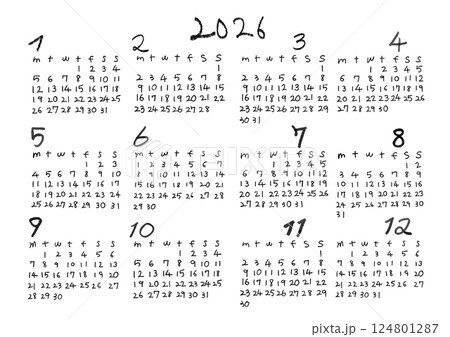 2026
1
m t w t f s s
1 2 3 4
5 6 7 8 9 10 11
12 13 14 15 16 17 18
19 20 21 22 23 24 25
26 27 28 29 30 31
2
m t w t f s s
1
2 3 4 5 6 7 8
9 10 11 12 13 14 15
16 17 18 19 20 21 22
23 24 25 26 27 28
3
m t w t f s s
1
2 3 4 5 6 7 8
9 10 11 12 13 14 15
16 17 18 19 20 21 22
23 24 25 26 27 28 29
30 31
4
m t w t f s s
1 2 3 4 5
6 7 8 9 10 11 12
13 14 15 16 17 18 19
20 21 22 23 24 25 26
27 28 29 30
5
m t w t f s s
1 2 3
4 5 6 7 8 9 10
11 12 13 14 15 16 17
18 19 20 21 22 23 24
25 26 27 28 29 30 31
6
m t w t f s s
1 2 3 4 5 6 7
8 9 10 11 12 13 14
15 16 17 18 19 20 21
22 23 24 25 26 27 28
29 30
7
m t w t f s s
1 2 3 4 5
6 7 8 9 10 11 12
13 14 15 16 17 18 19
20 21 22 23 24 25 26
27 28 29 30 31
8
m t w t f s s
1 2
3 4 5 6 7 8 9
10 11 12 13 14 15 16
17 18 19 20 21 22 23
24 25 26 27 28 29 30
31
9
m t w t f s s
1 2 3 4 5 6
7 8 9 10 11 12 13
14 15 16 17 18 19 20
21 22 23 24 25 26 27
28 29 30
10
m t w t f s s
1 2 3 4
5 6 7 8 9 10 11
12 13 14 15 16 17 18
19 20 21 22 23 24 25
26 27 28 29 30 31
11
m t w t f s s
1
2 3 4 5 6 7 8
9 10 11 12 13 14 15
16 17 18 19 20 21 22
23 24 25 26 27 28 29
30
12
m t w t f s s
1 2 3 4 5 6
7 8 9 10 11 12 13
14 15 16 17 18 19 20
21 22 23 24 25 26 27
28 29 30 31
pixta.jp - 124801287